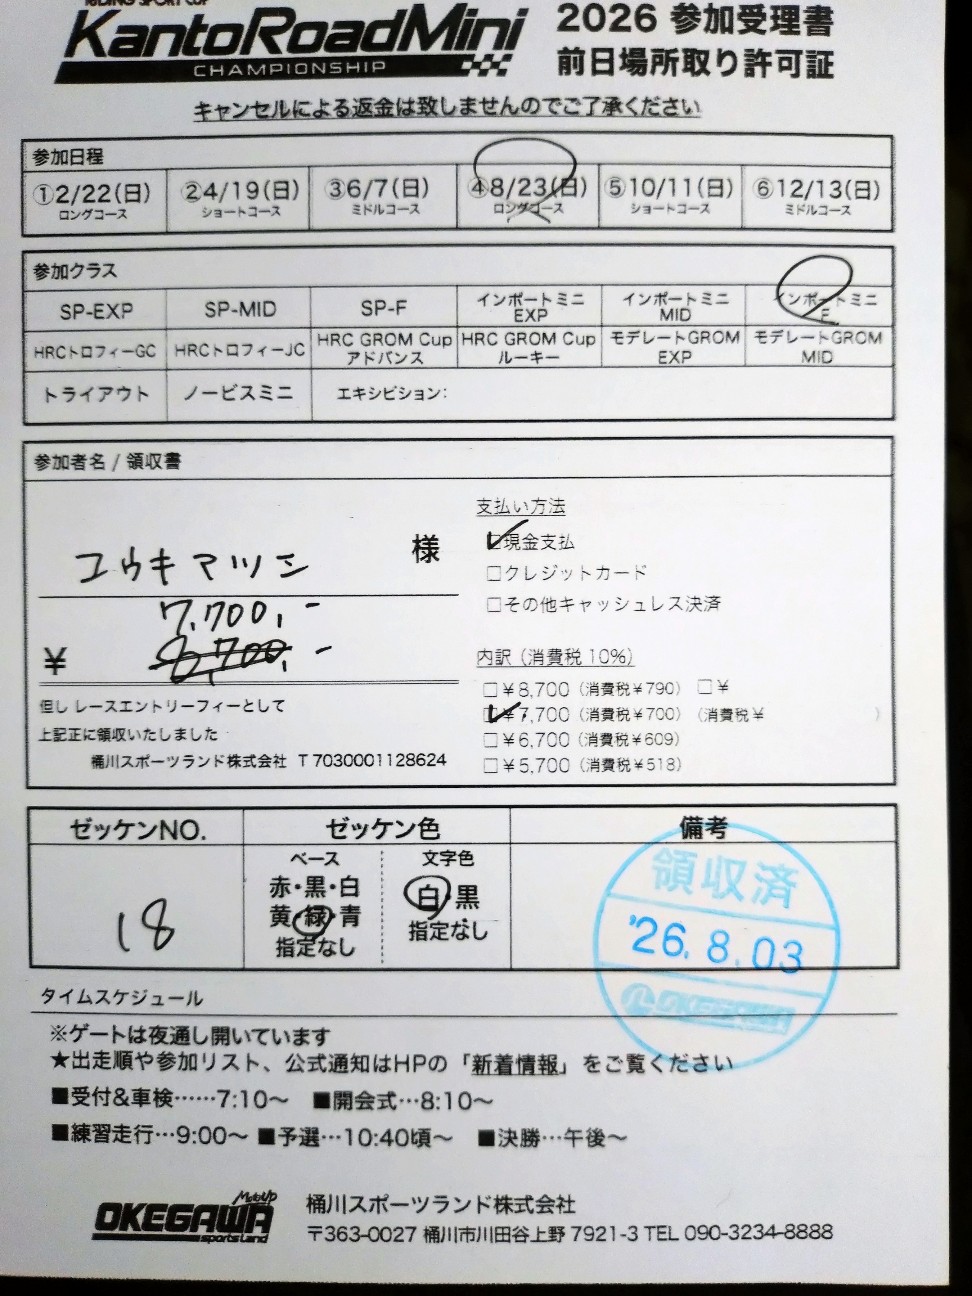 RIDING SPORT CUP
KantoRoadMini
CHAMPIONSHIP
2026 参加受理書
前日場所取り許可証
キャンセルによる返金は致しませんのでご了承ください
参加日程
①2/22(日) ②4/19(日) ③6/7(日) ④8/23(日) ⑤10/11(日) ⑥12/13(日)
ロングコース ショートコース ミドルコース ロングコース ショートコース ミドルコース
参加クラス
SP-EXP SP-MID SP-F インポートミニ EXP インポートミニ MID インポートミニ F
HRCトロフィーGC HRCトロフィーJC HRC GROM Cup アドバンス HRC GROM Cup ルーキー モデレートGROM EXP モデレートGROM MID
トライアウト ノービスミニ エキシビション:
参加者名 / 領収書
ユウキ マツシ 様
7,700,-
¥ 6,700,-
但し レースエントリーフィーとして
上記正に領収いたしました
桶川スポーツランド株式会社 T7030001128624
支払い方法
□現金支払
□クレジットカード
□その他キャッシュレス決済
内訳（消費税10%）
□¥8,700（消費税¥790）□¥
□¥7,700（消費税¥700）（消費税¥ ）
□¥6,700（消費税¥609）
□¥5,700（消費税¥518）
ゼッケンNO. ゼッケン色 備考
18
ベース
赤・黒・白
黄・緑・青
指定なし
文字色
白・黒
指定なし
領収済
'26.8.03
OKEGAWA
タイムスケジュール
※ゲートは夜通し開いています
★出走順や参加リスト、公式通知はHPの「新着情報」をご覧ください
■受付&車検……7:10〜 ■開会式…8:10〜
■練習走行…9:00〜 ■予選…10:40頃〜 ■決勝…午後〜
MotoUp
OKEGAWA
sportsland
桶川スポーツランド株式会社
〒363-0027 桶川市川田谷上野 7921-3 TEL 090-3234-8888